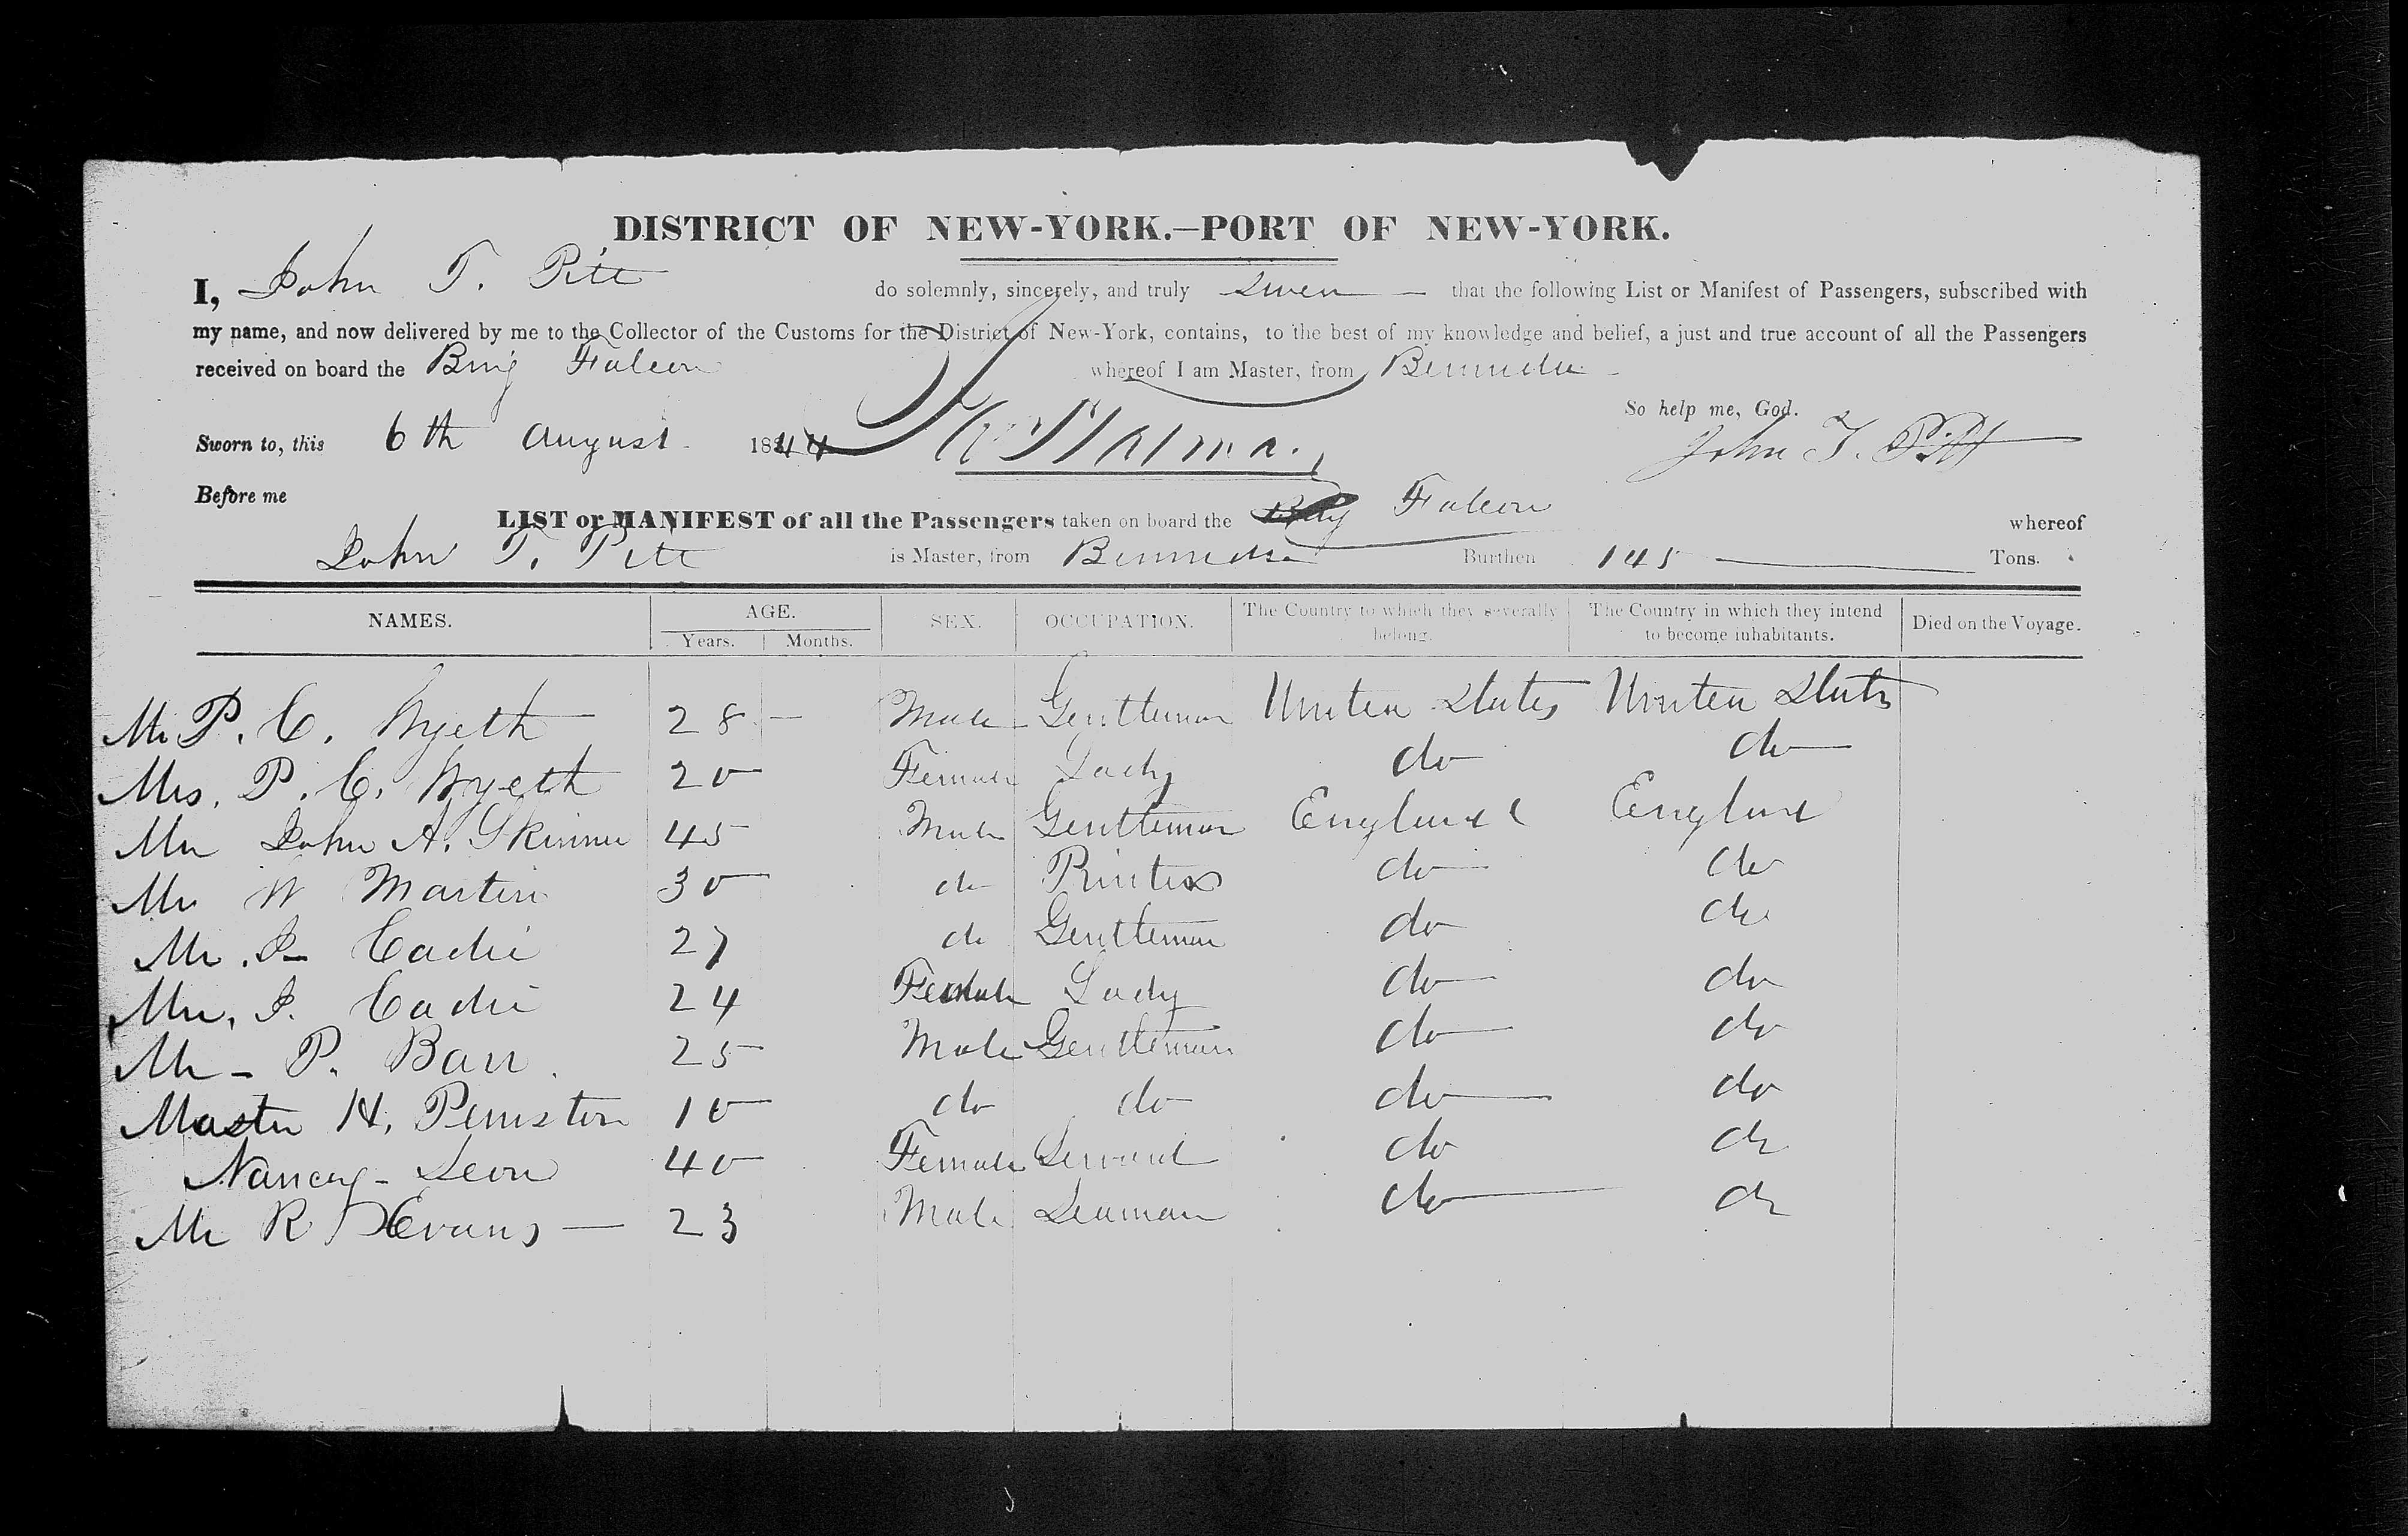 DISTRICT OF NEW-YORK.—PORT OF NEW-YORK.
I, John T. Pitt do solemnly, sincerely, and truly swear that the following List or Manifest of Passengers, subscribed with
my name, and now delivered by me to the Collector of the Customs for the District of New-York, contains, to the best of my knowledge and belief, a just and true account of all the Passengers
received on board the Brig Falcon whereof I am Master, from Bermuda
So help me, God.
Sworn to, this 6th August 1844 John T. Pitt
Before me
LIST or MANIFEST of all the Passengers taken on board the Brig Falcon whereof
John T. Pitt is Master, from Bermuda Burthen 145 Tons.
NAMES. AGE. SEX. OCCUPATION. The Country to which they severally belong. The Country in which they intend to become inhabitants. Died on the Voyage.
Years. Months.
Mr P. C. Wyeth 28 — Male Gentleman United States United States
Mrs. P. C. Wyeth 20 Female Lady do do
Mr John A. Skinner 45 Male Gentleman England England
Mr W Martin 30 do Printer do do
Mr. J. Eadie 27 do Gentleman do do
Mrs. J. Eadie 24 Female Lady do do
Mr - P. Barr 25 Male Gentleman do do
Master H. Peniston 10 do do do do
Nancy - Leon 40 Female Servant do do
Mr R Evans — 23 Male Seaman do do